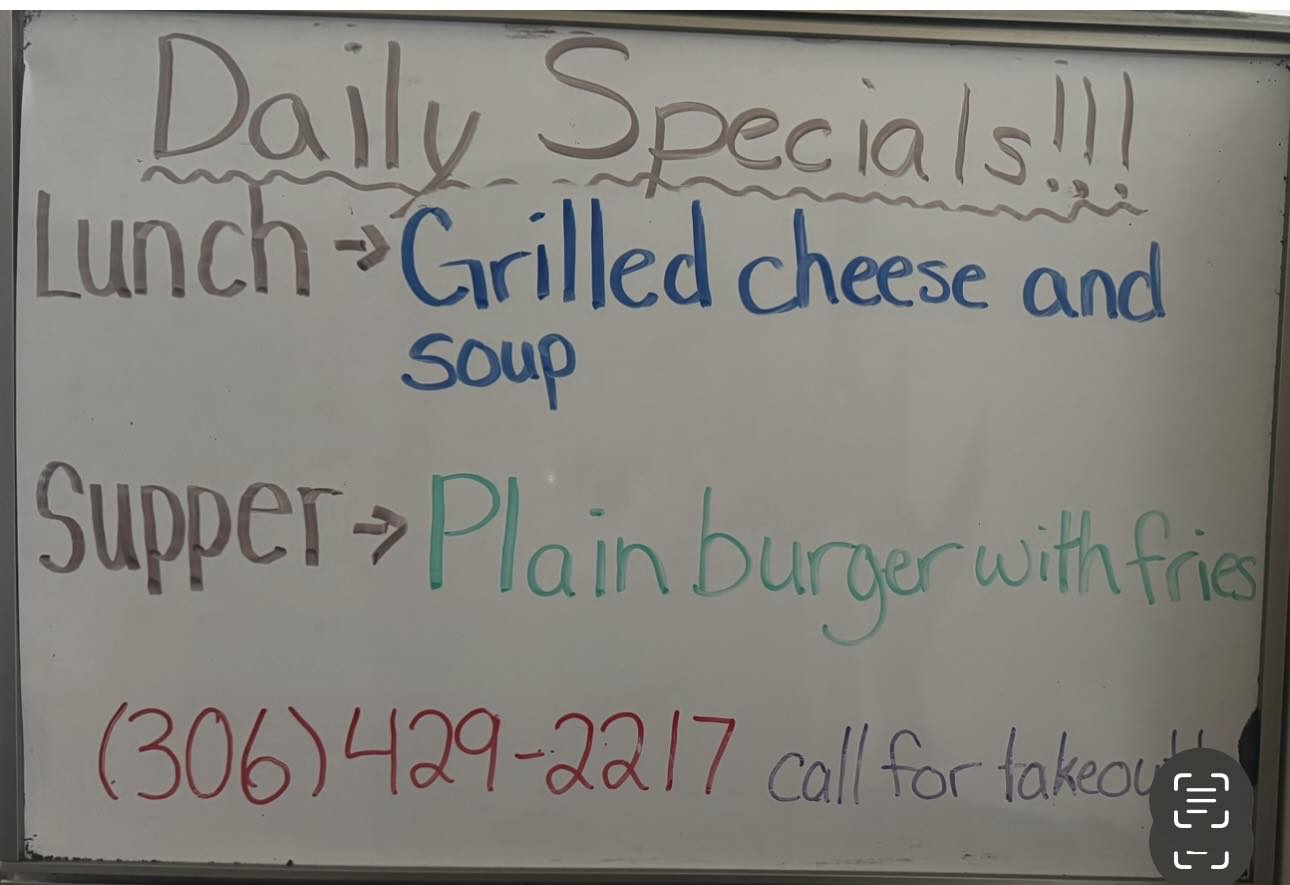 Daily Specials!!!
Lunch → Grilled cheese and
soup
Supper → Plain burger with fries
(306) 429-2217 call for